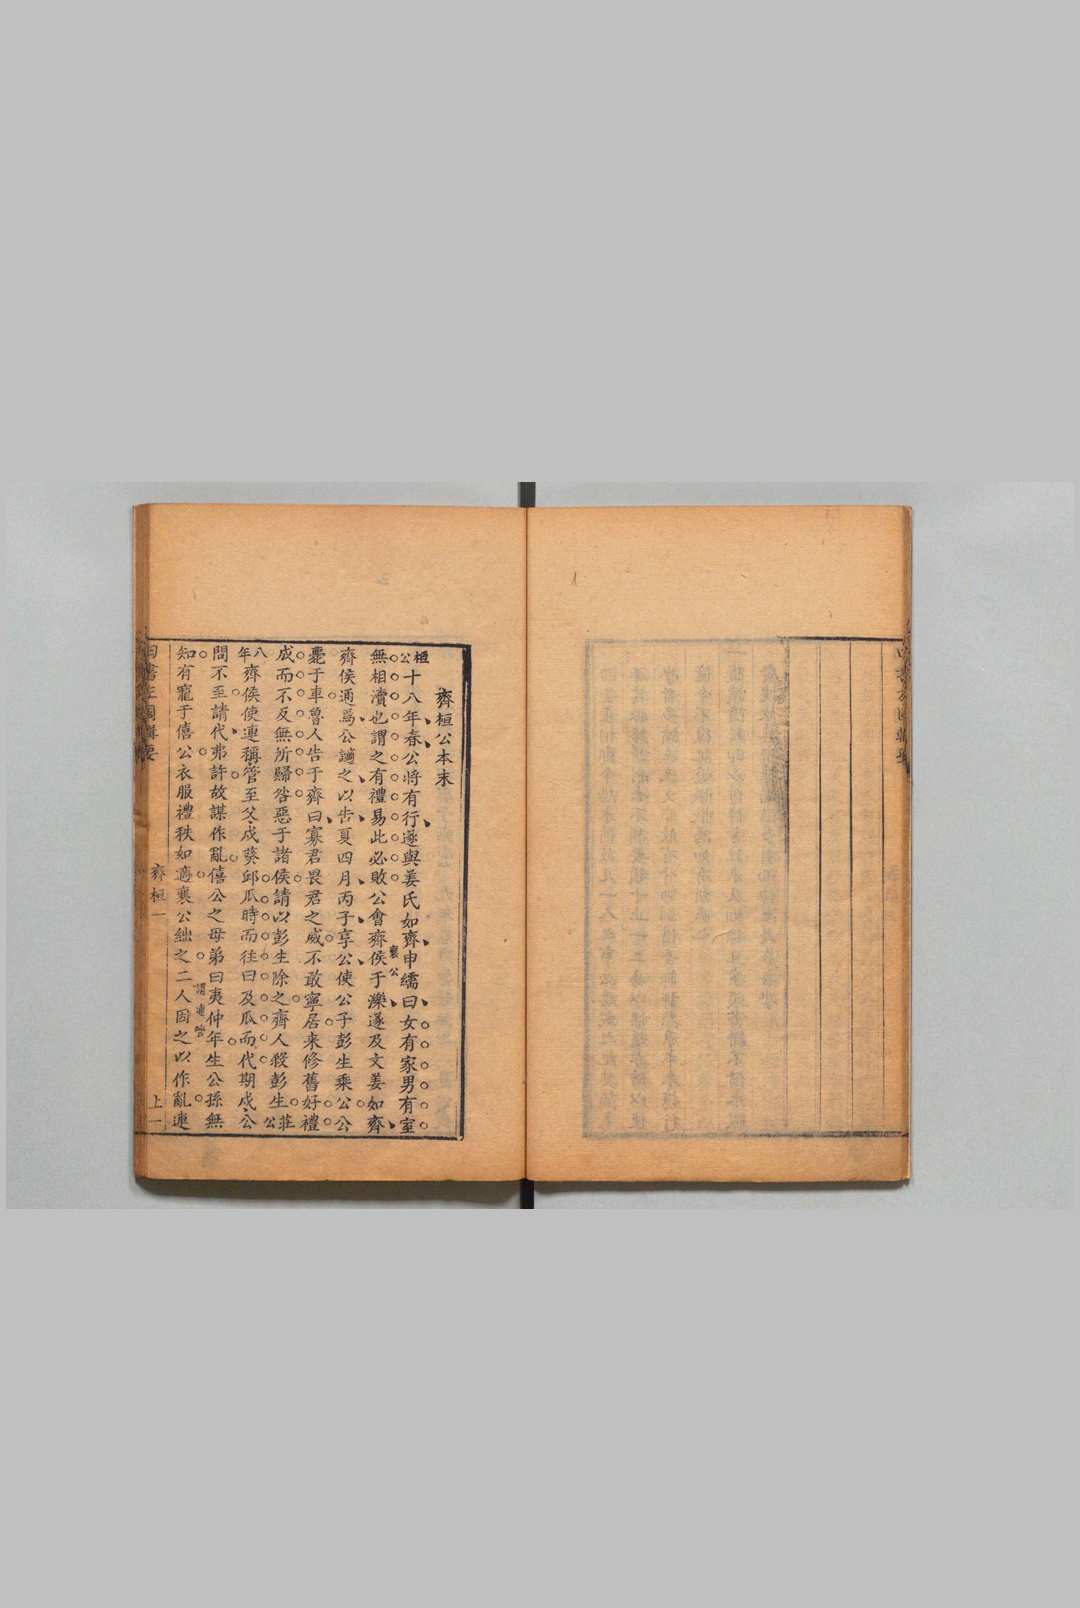 齊桓公本末
桓公十八年春公將有行遂與姜氏如齊申繻曰女有家男有室
無相瀆也謂之有禮易此必敗公會齊侯于濼遂及文姜如齊
襄公
齊侯通焉公謫之以告夏四月丙子享公使公子彭生乘公公
薨于車魯人告于齊曰寡君畏君之威不敢寧居來修舊好禮
成而不反無所歸咎惡于諸侯請以彭生除之齊人殺彭生莊公
八年齊侯使連稱管至父戍葵邱瓜時而往曰及瓜而代期戍公
問不至請代弗許故謀作亂僖公之母弟曰夷仲年生公孫無
知有寵于僖公衣服禮秩如適襄公絀之二人因之以作亂連
謂連管
齊桓一
上一